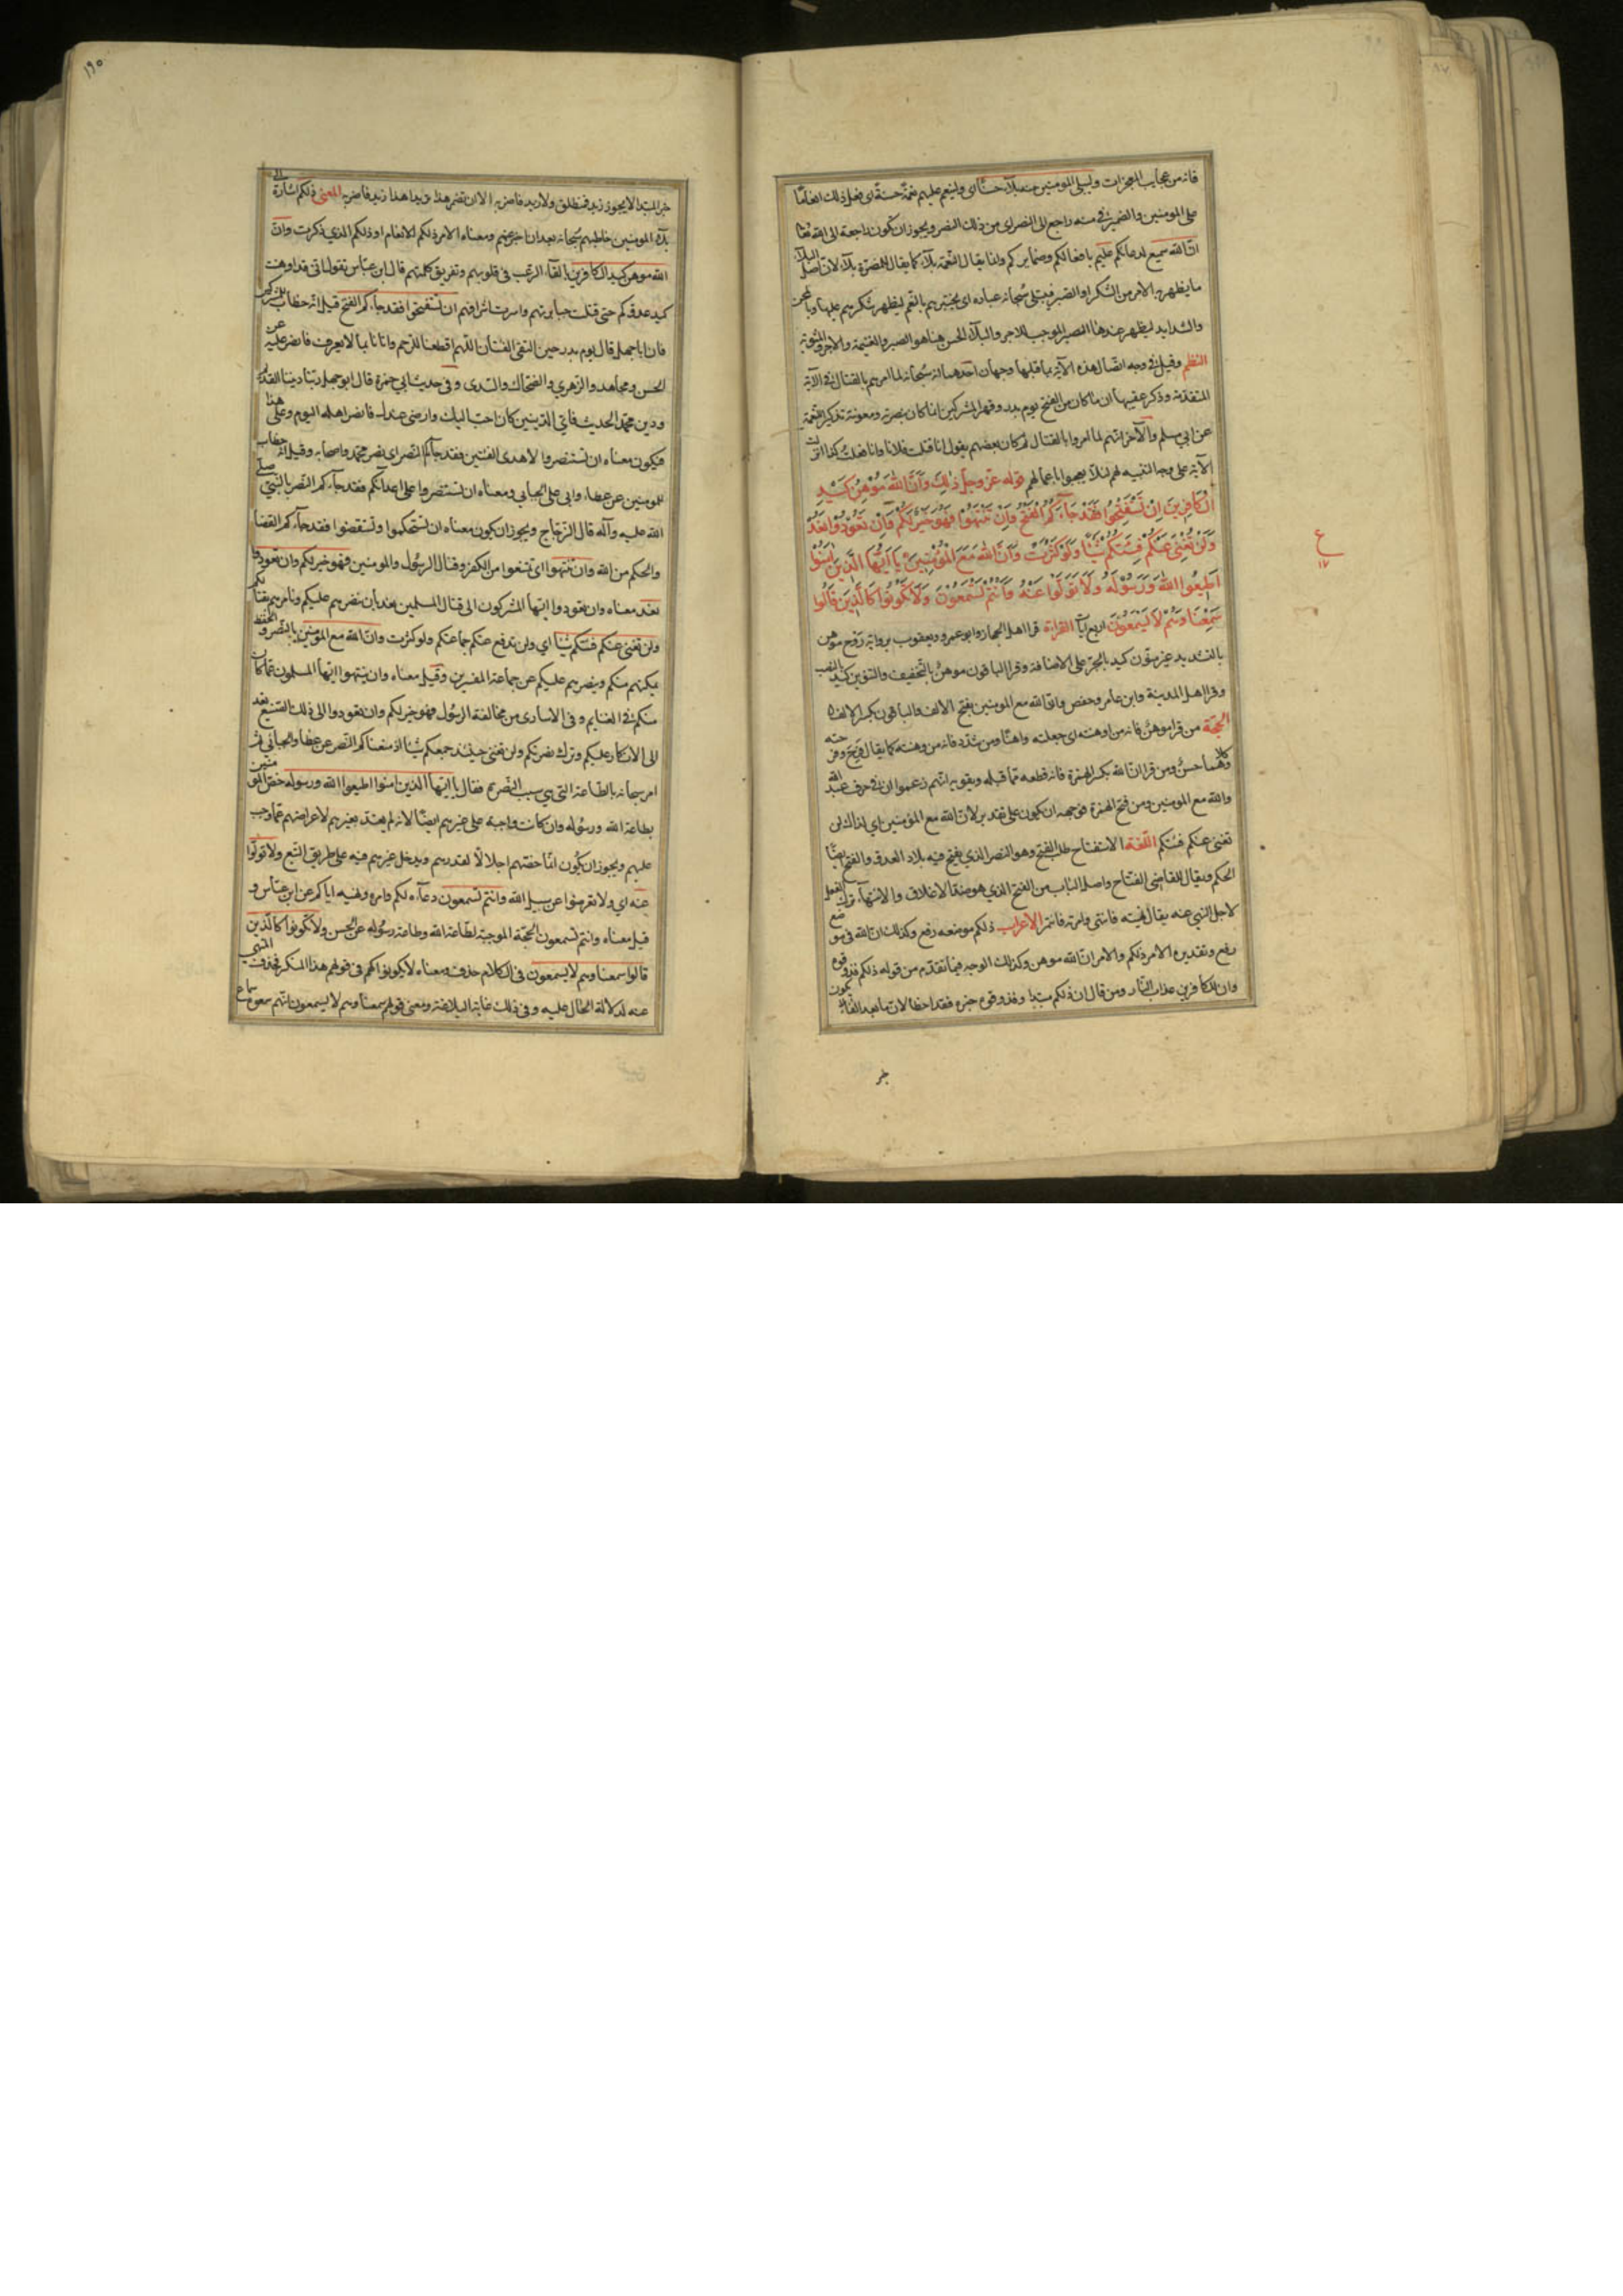 فانه من عجايب المعجزات وليبلي المومنين منه بلاء حسنا اي ولينعم عليهم نعمة حسنة اي فعل ذلك انعاما
على المومنين والضمير في منه راجع الى النصر اي من ذلك النصر ويجوز ان يكون راجعة الى الله تعالى
ان الله سميع لدعائكم عليم بافعالكم وضمايركم وانما يقال للنعمة بلاء كما يقال للمضرة بلاء لان اصل البلاء
ما يظهر به الامر من الشكر او الصبر فيبتلي سبحانه عباده اي يختبرهم بالنعم ليظهر شكرهم عليها وبالمحن
والشدايد ليظهر عندها الصبر الموجب للاجر والبلاء الحسن هنا هو النصر والغنيمة والاجر والمثوبة
النظم وقيل في وجه اتصال هذه الآية بما قبلها وجهان احدهما انه سبحانه لما امرهم بالقتال في الآية
المتقدمة وذكر عقيبها ان ما كان من الفتح يوم بدر وقهر المشركين انما كان بنصرته ومعونته تذكير النعمة
عن ابي مسلم والآخر انهم لما امروا بالقتال ثم كان بعضهم يقول انا قتلت فلانا وانا فعلت كذا نزلت
الآية على وجه التنبيه لهم لئلا يعجبوا باعمالهم قوله عز وجل ذلك وان الله موهن كيد
الكافرين ان تستفتحوا فقد جاءكم الفتح وان تنتهوا فهو خير لكم وان تعودوا نعد
ولن تغني عنكم فئتكم شيئا ولو كثرت وان الله مع المؤمنين يا ايها الذين امنوا
اطيعوا الله ورسوله ولا تولوا عنه وانتم تسمعون ولا تكونوا كالذين قالوا
سمعنا وهم لا يسمعون اربع آيات القراءة قرا اهل الحجاز وابو عمرو ويعقوب برواية روح موهن
بالتشديد غير منون كيد بالجر على الاضافة وقرا الباقون موهن بالتخفيف والتنوين كيد بالنصب
وقرا اهل المدينة وابن عامر وحفص وان الله مع المومنين بفتح الالف والباقون بكسر الالف
الحجة من قرا موهن فانه من اوهنته اي جعلته واهنا ومن شدد فانه من وهنته كما يقال فرح وفرحته
وكلاهما حسن ومن قرا ان الله بكسر الهمزة فانه قطعه مما قبله ويقويه انهم زعموا ان في حرف عبد الله
والله مع المومنين ومن فتح الهمزة فوجهه ان يكون على تقدير لان الله مع المؤمنين اي لذلك لن
تغني عنكم فئتكم اللغة الاستفتاح طلب الفتح وهو النصر الذي يفتح فيه بلاد العدو والفتح ايضا
الحكم ويقال للقاضي الفتاح واصل الباب من الفتح الذي هو ضد الاغلاق والانتهاء ترك الفعل
لاجل النهي عنه يقال نهيته فانتهى وامرته فائتمر الاعراب ذلكم موضعه رفع وكذلك ان الله في موضع
رفع وتقديره الامر ذلكم والامر ان الله موهن وكذلك الوجه فيما تقدم من قوله ذلكم فذوقوه
وان للكافرين عذاب النار ومن قال ان ذلكم مبتدا وفذوقوه خبره فقد اخطا لان ما بعد الفاء لا يكون
خبر
ع
١٧
١٩٥
خبر المبتدا لا يجوز زيد فمنطلق ولا زيد فاضربه الا ان تضمر هذا ويدا هذا زيد فاضربه المعنى ذلكم اشارة الى
بلاء المومنين خاطبهم سبحانه بعد ان اخبر عنهم ومعناه الامر ذلكم الانعام او ذلكم الذي ذكرت وان
الله موهن كيد الكافرين بالقاء الرعب في قلوبهم وتفريق كلمتهم قال ابن عباس يقول اني قد اوهنت
كيد عدوكم حتى قتلت جبابرتهم واسرت اشرافهم ان تستفتحوا فقد جاءكم الفتح قيل انه خطاب للمشركين
فان ابا جهل قال يوم بدر حين التقى الفئتان اللهم اقطعنا للرحم واتانا بما لا يعرف فانصر عليه عن
الحسن ومجاهد والزهري والضحاك والسدى وفى حديث ابي حمزة قال ابو جهل ربنا ديننا القديم
ودين محمد الحديث فاي الدينين كان احب اليك وارضى عندك فانصر اهله اليوم وعلى هذا
فيكون معناه ان تستنصروا لاهدى الفئتين فقد جاءكم النصر اي نصر محمد واصحابه وقيل انه خطاب
للمومنين عن عطاء وابي علي الجبائي ومعناه ان تستنصروا على اعدائكم فقد جاءكم النصر بالنبي صلى
الله عليه وآله قال الزجاج ويجوز ان يكون معناه ان تستحكموا وتستقضوا فقد جاءكم القضا
والحكم من الله وان تنتهوا اي تمتنعوا من الكفر وقتال الرسول والمومنين فهو خير لكم وان تعودوا
نعد معناه وان تعودوا ايها المشركون الى قتال المسلمين نعد بان ننصرهم عليكم ونامرهم بقتالكم
ولن تغني عنكم فئتكم شيئا اي ولن تدفع عنكم جماعتكم ولو كثرت وان الله مع المؤمنين بالنصر والحفظ
يمكنهم منكم وينصرهم عليكم عن جماعة المفسرين وقيل معناه وان تنتهوا ايها المسلمون عما كان
منكم في الغنايم وفي الاسارى من مخالفة الرسول فهو خير لكم وان تعودوا الى ذلك الصنيع نعد
الى الانكار عليكم وترك نصرتكم ولن تغني حينئذ جمعكم شيئا اذ منعناكم النصر عن عطاء والجبائي ثم
امر سبحانه بالطاعة التي هي سبب النصرة فقال يا ايها الذين امنوا اطيعوا الله ورسوله خص المومنين
بطاعة الله ورسوله وان كانت واجبة على غيرهم ايضا لانه لم يعتد بغيرهم لاعراضهم عما وجب
عليهم ويجوز ان يكون انما خصهم اجلالا لقدرهم ويدخل غيرهم فيه على طريق التبع ولا تولوا
عنه اي ولا تعرضوا عن سبيل الله وانتم تسمعون دعاءه لكم وامره ونهيه اياكم عن ابن عباس و
قيل معناه وانتم تسمعون الحجة الموجبة لطاعة الله وطاعة رسوله عن الحسن ولا تكونوا كالذين
قالوا سمعنا وهم لا يسمعون في الكلام حذف ومعناه لا تكونوا كهم في قولهم هذا المنكر فحذف المنهي
عنه لدلالة الحال عليه وفي ذلك غاية البلاغة ومعنى قولهم سمعنا وهم لا يسمعون انهم سمعوه سماع